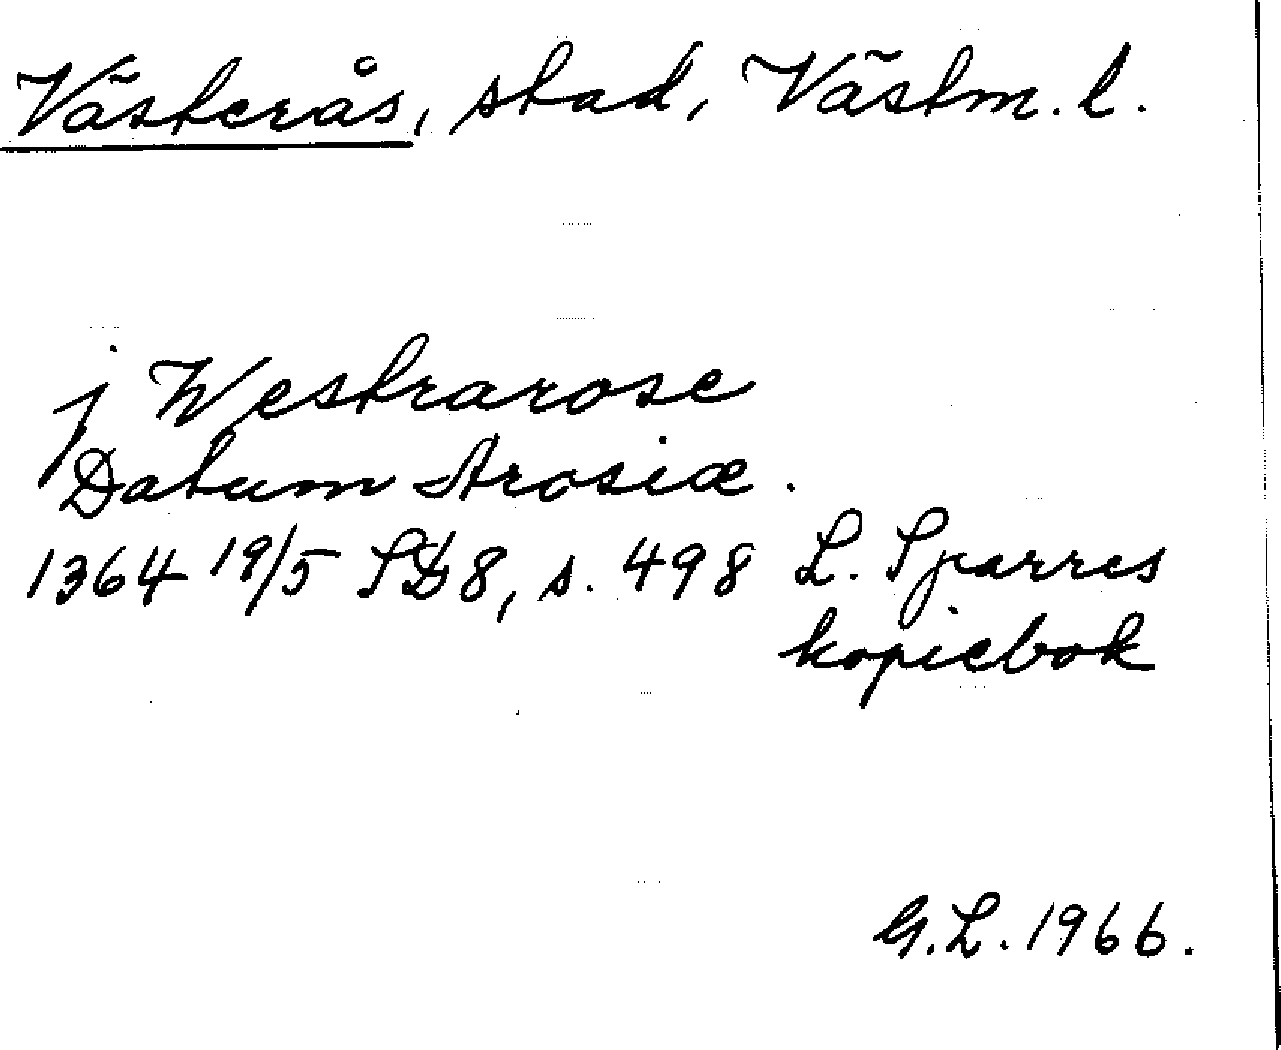 Västerås, stad, Västm. l.
j Westrarose
Datum Arosiæ.
1364 19/5 SD8, s. 498 L. Sparres
kopiebok
G.L. 1966.